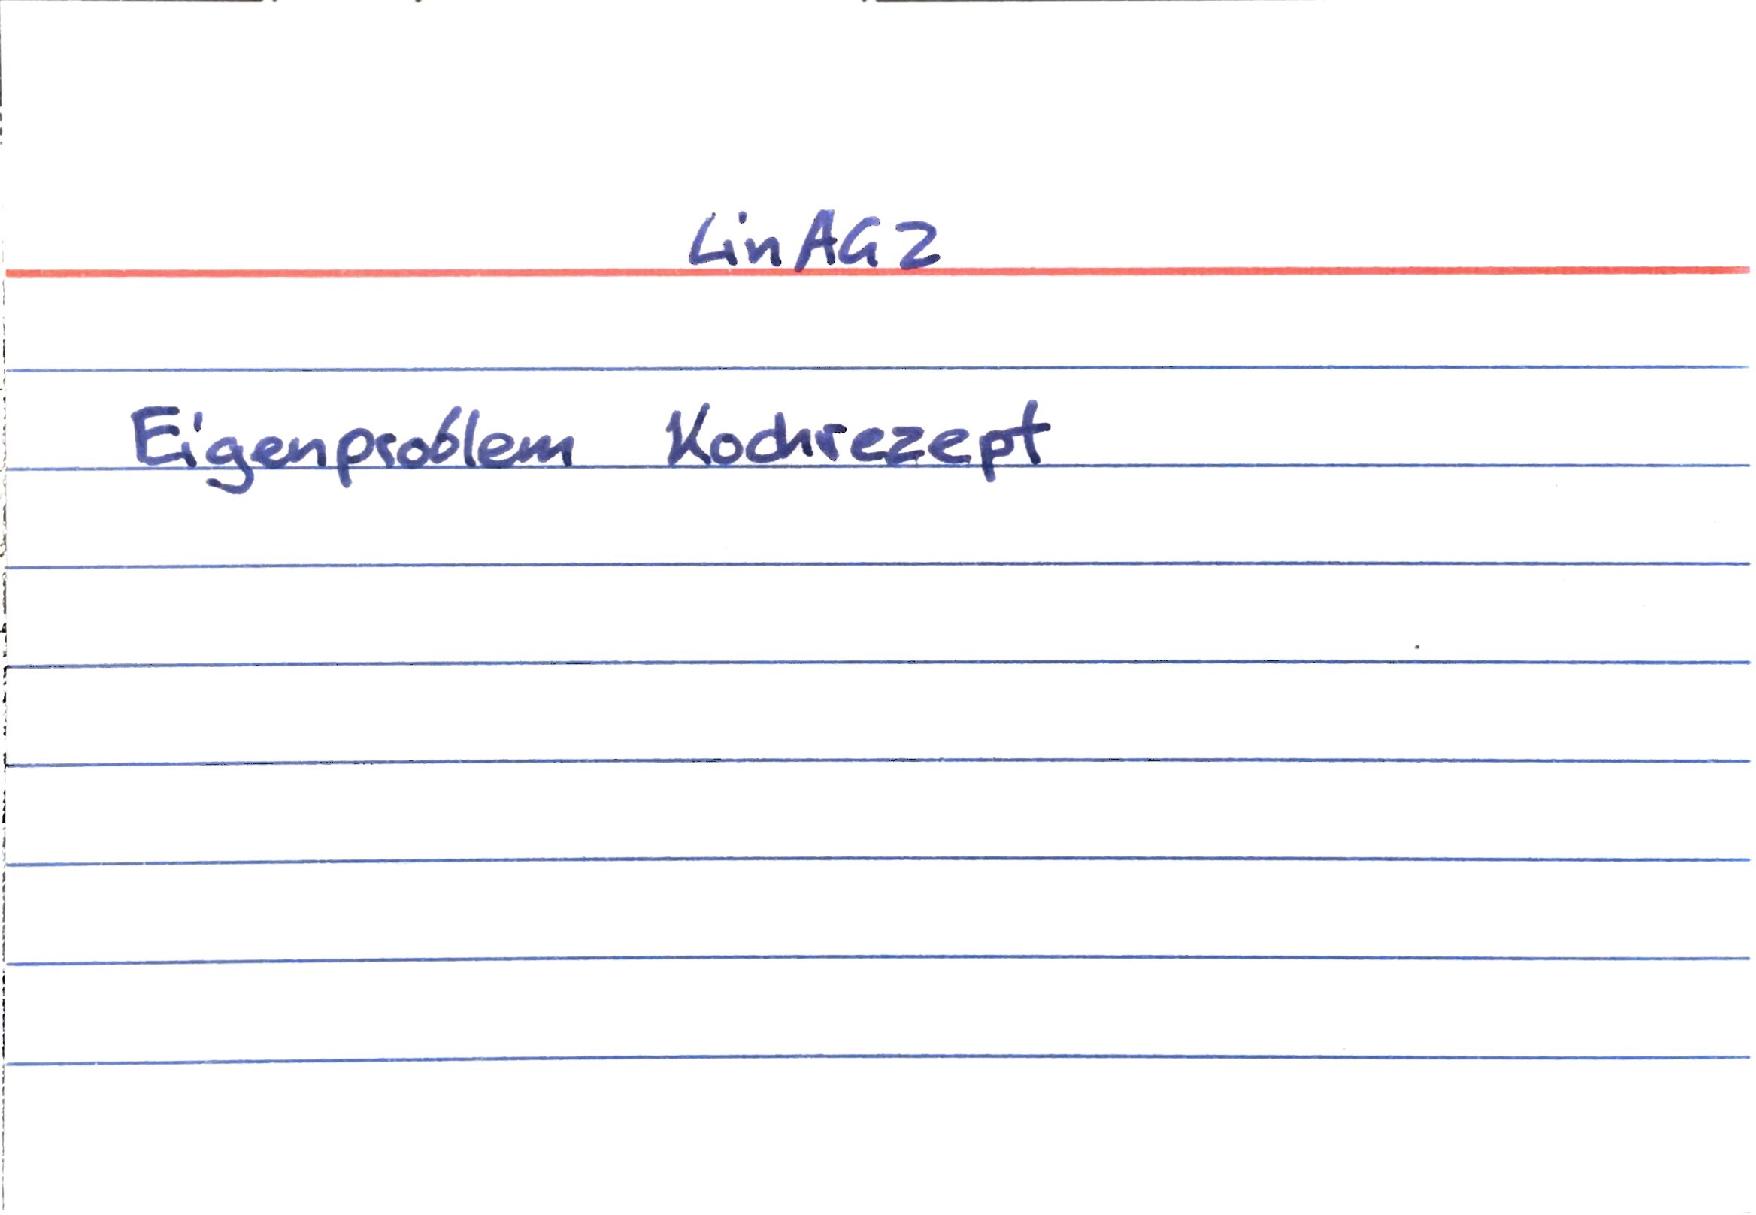 LinAG2
Eigenproblem Kochrezept